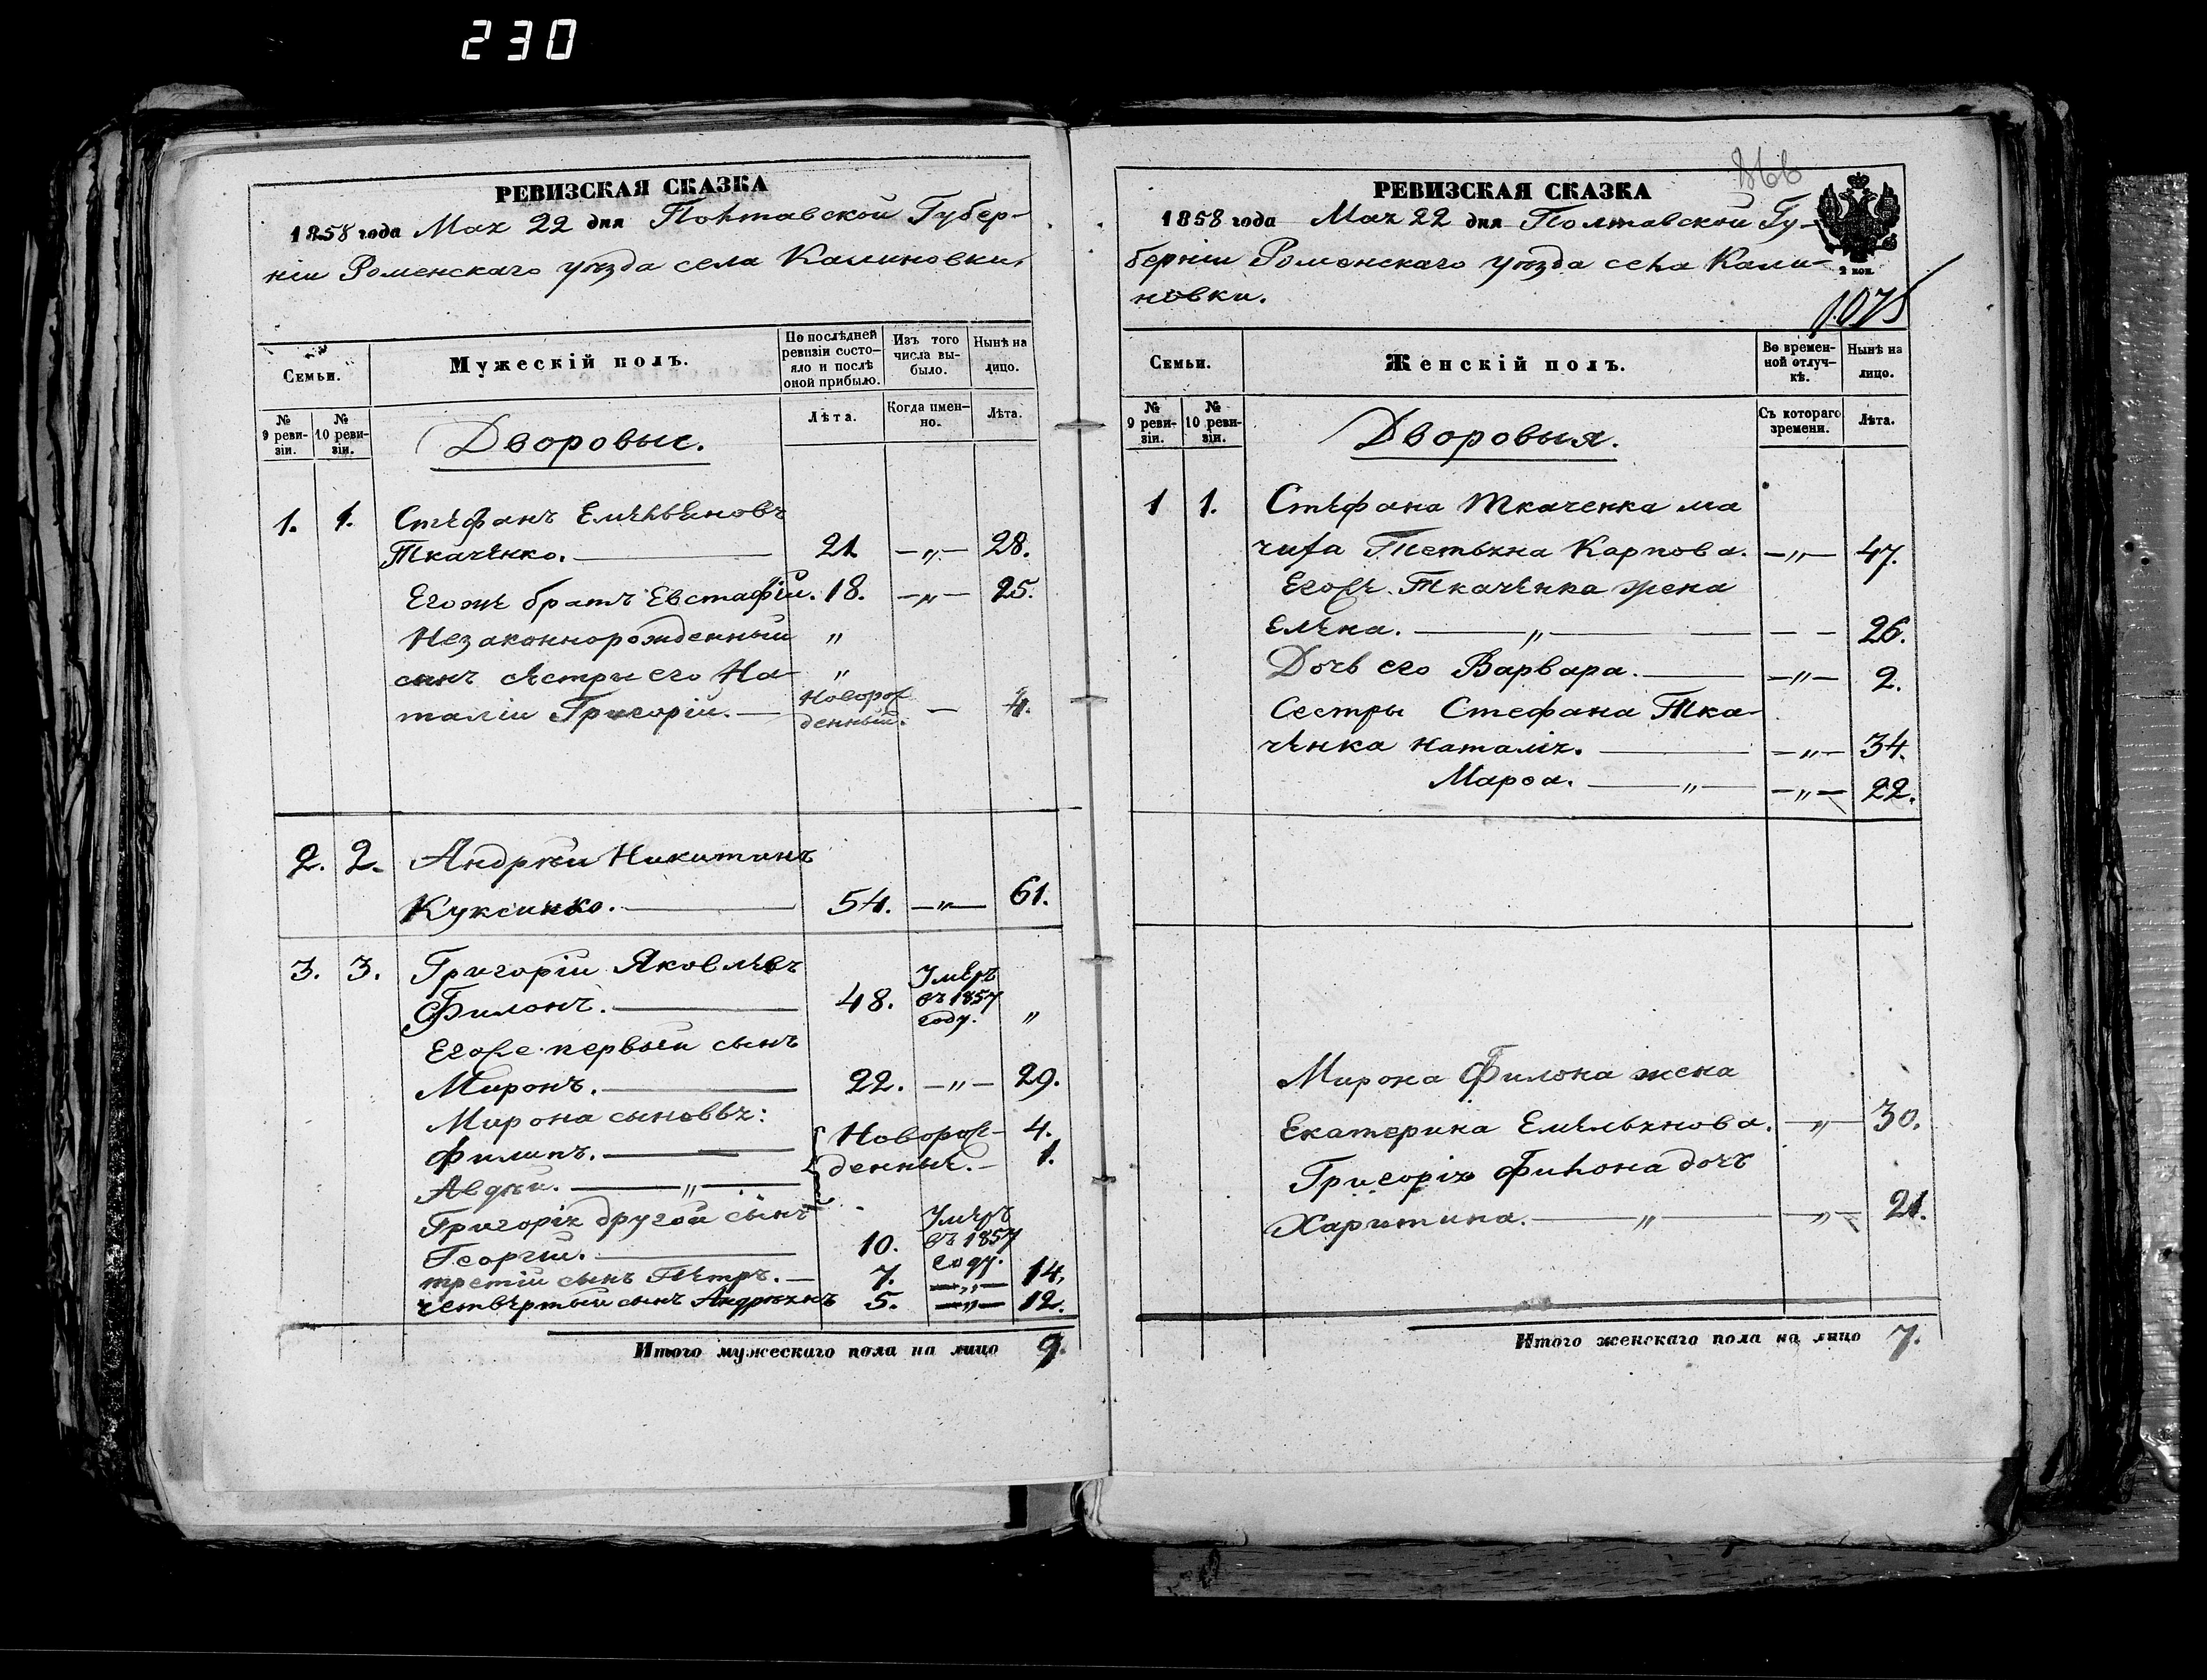 230
РЕВИЗСКАЯ СКАЗКА
1858 года Мая 22 дня Полтавской Губер-
ніи Роменскаго уѣзда села Калиновки,
Семьи.
Мужескій полъ.
По послѣдней ревизіи состо-яло и послѣ оной прибыло.
Изъ того числа вы-было.
Нынѣ на лицо.
№ 9 реви-зіи.
№ 10 реви-зіи.
Лѣта.
Когда имен-но.
Лѣта.
Дворовые.
1. 1. Стефанъ Емельяновъ
Ткаченко. 21 —„— 28.
Егоже братъ Евстафій. 18. —„— 25.
Незаконнорожденный „
сынъ сестры его На- „
таліи Григорій. — Новорож
денный. — 4.
2. 2. Андрѣй Никитинъ
Куксенко. 54. —„— 61.
3. 3. Григорій Яковлевъ
Филонъ. 48. Умеръ въ 1857 году. „
Егоже первый сынъ
Миронъ. 22. —„— 29.
Мирона сыновья:
Филипъ. Новорож- 4.
Авдѣй. —„— денные. — 1.
Григорія другой сынъ
Георгій. 10. Умеръ въ 1857 году.
третій сынъ Петръ. — 7. —„— 14,
четвертый сынъ Андреянъ 5. —„— 12.
Итого мужескаго пола на лицо 9.
РЕВИЗСКАЯ СКАЗКА
1858 года Мая 22 дня Полтавской Гу-
берніи Роменскаго уѣзда села Кали-
новки.
2 коп.
1075
Семьи.
Женскій полъ.
Во времен-ной отлуч-кѣ.
Нынѣ на лицо.
№ 9 реви-зіи.
№ 10 реви-зіи.
Съ котораго времени.
Лѣта.
Дворовыя.
1 1. Стефана Ткаченка ма
чиха Татьяна Карпова. —„— 47.
Егоже Ткаченка жена
Елена. —„— — — 26.
Дочь его Варвара. —„— 2.
Сестры Стефана Тка-
ченка Наталія. —„— 34.
Марѳа. —„— —„— 22.
Мирона Филона жена
Екатерина Емельянова. —„— 30.
Григорія Филона дочь
Харитина. —„— —„— 21.
Итого женскаго пола на лицо 7.